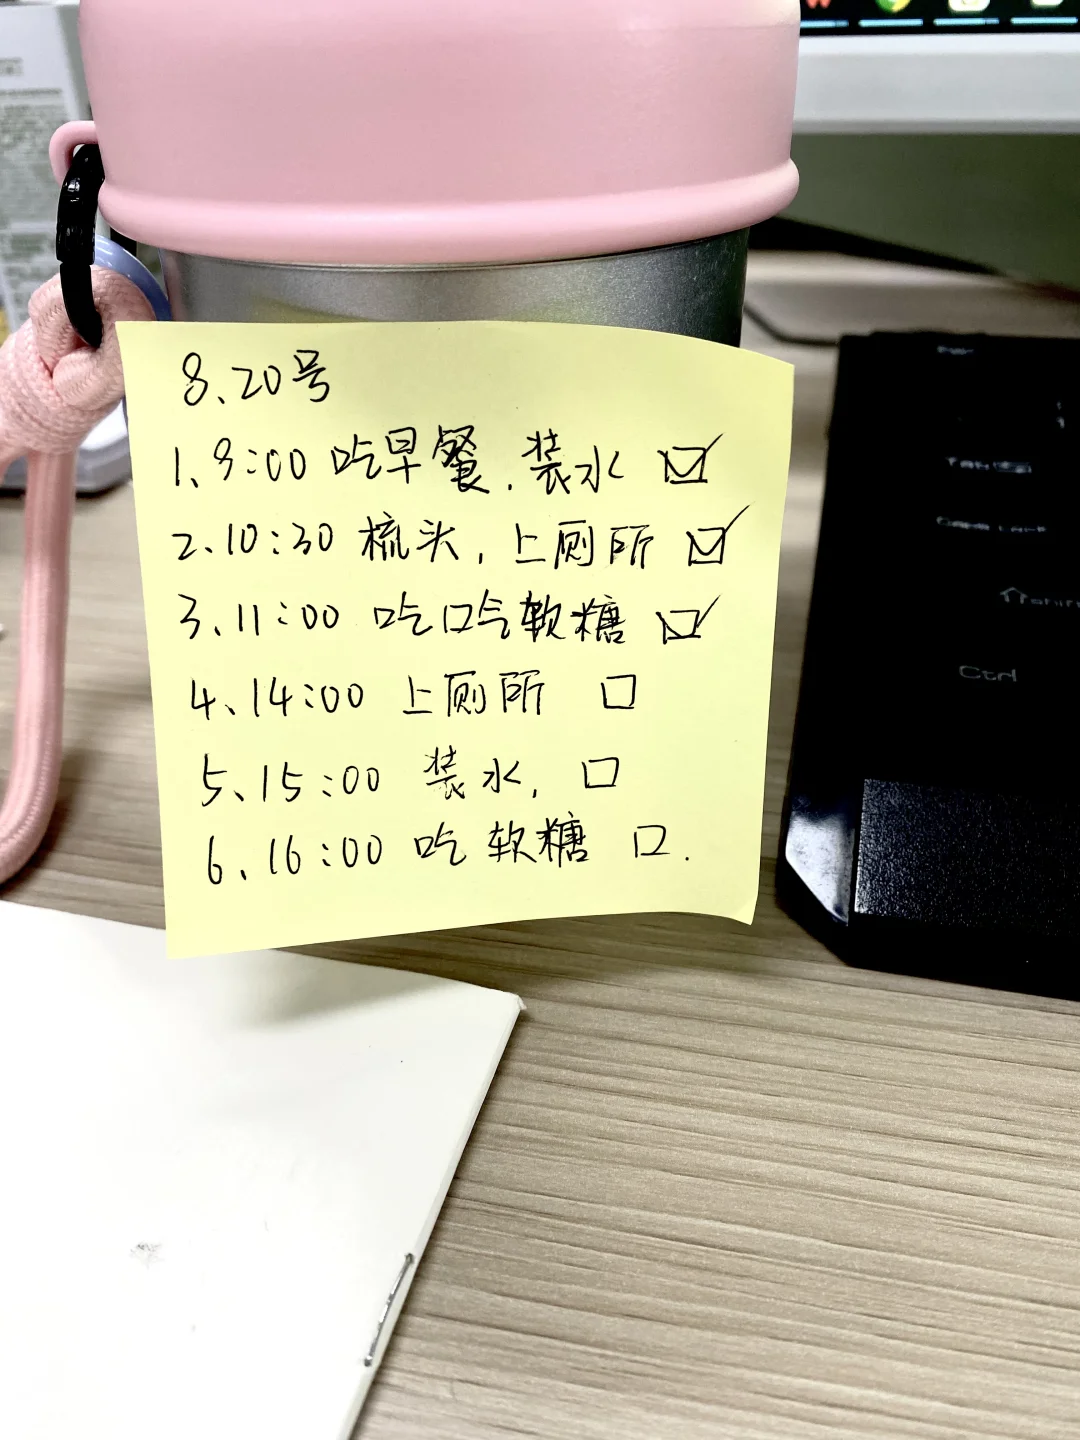 8、20号
1、9:00 吃早餐、装水 ☑
2、10:30 梳头，上厕所 ☑
3、11:00 吃口气软糖 ☑
4、14:00 上厕所 □
5、15:00 装水， □
6、16:00 吃软糖 □.
Ctrl